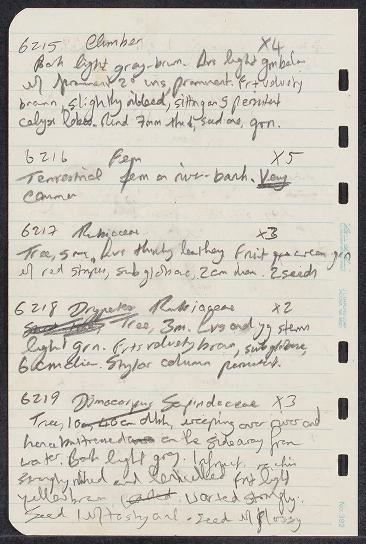 6215 Climber X4
Bark light gray-brown. Lvs light gn below
w/ prominent 2° vns prominent. Frt velvety
brown, slightly ribbed, sitting on 5 persistent
calyx lobes. Rind 7mm thick, seed one, grn.
6216 Fern X5
Terrestrial fern on river-bank. Very
common
6217 Rubiaceae X3
Tree, 5m, Lvs thickly leathery Fruit
w/ red stripes, subglobose, 2cm diam. 2 seeds
6218 Drypetes Rubiaceae X2
Tree, 3m. Lvs and yg stems
light grn. Frts velvety brown, subglobose,
6cm diam. Stylar column persistent.
6219 Dimocarpus Sapindaceae X3
Tree, 10m, 40cm dbh, weeping over river and
hence buttressed on the side away from
water. Bark light grey. Infruct.
strongly ribbed and lenticelled Frt light
yellow brown Warted strongly.
Seed 1 w/ tasty aril. Seed w/ glossy
No. 392